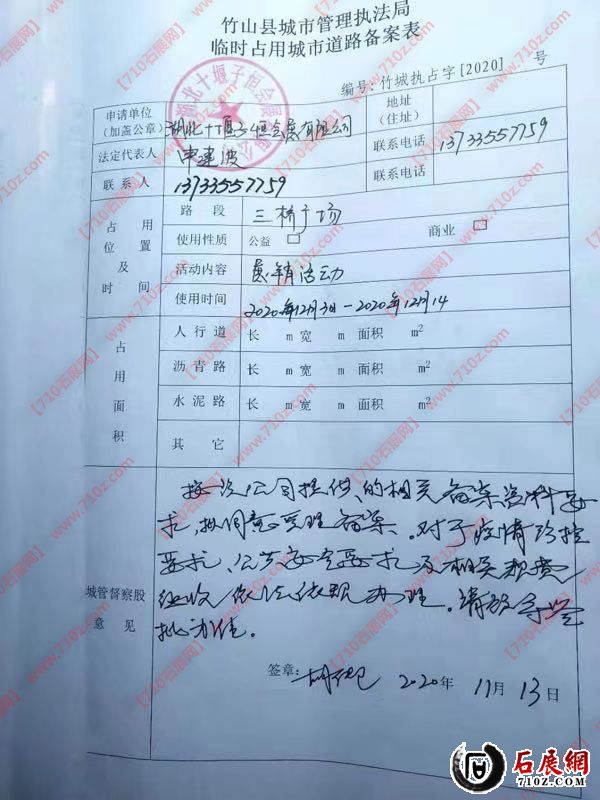 竹山县城市管理执法局
临时占用城市道路备案表
编号：竹城执占字 [2020] 号
申请单位 湖北十堰子恒会展有限公司 地址
（加盖公章） （住址）
法定代表人 申建波 联系电话 13733557759
联系人 13733557759 联系电话
占用位置及时间 路段 三桥广场
使用性质 公益 □ 商业 □
活动内容 展销活动
使用时间 2020年12月3日-2020年12月14
占用面积 人行道 长 m 宽 m 面积 m²
沥青路 长 m 宽 m 面积 m²
水泥路 长 m 宽 m 面积 m²
其它
城管督察股意见
按该公司提供的相关备案资料要
求，拟同意受理备案。对于疫情防控
要求、公共安全要求及相关规费
征收依法依规办理。请领导签
批为佳。
签章： 2020年 11月 13日
石展网
710z.com
【710石展网】www.710z.com